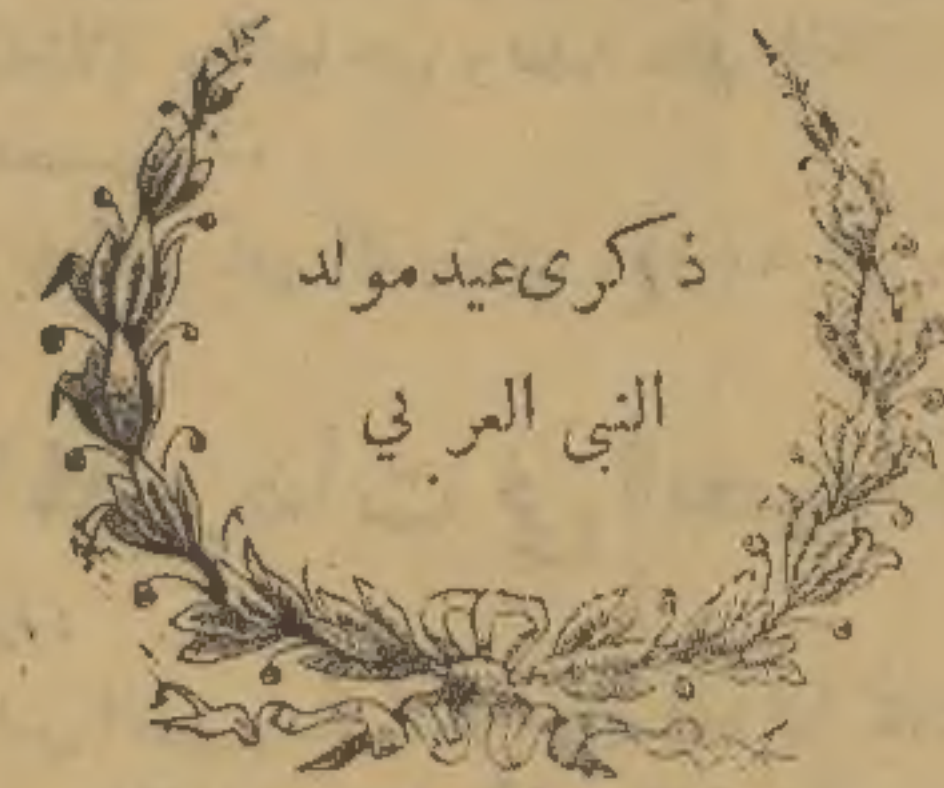 ذكرى عيد مولد
النبي العربي